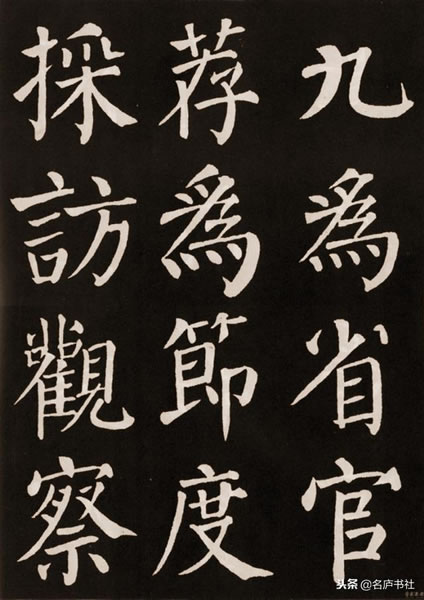 九為省官
荐為節度
採訪觀察
头条@名庐书社